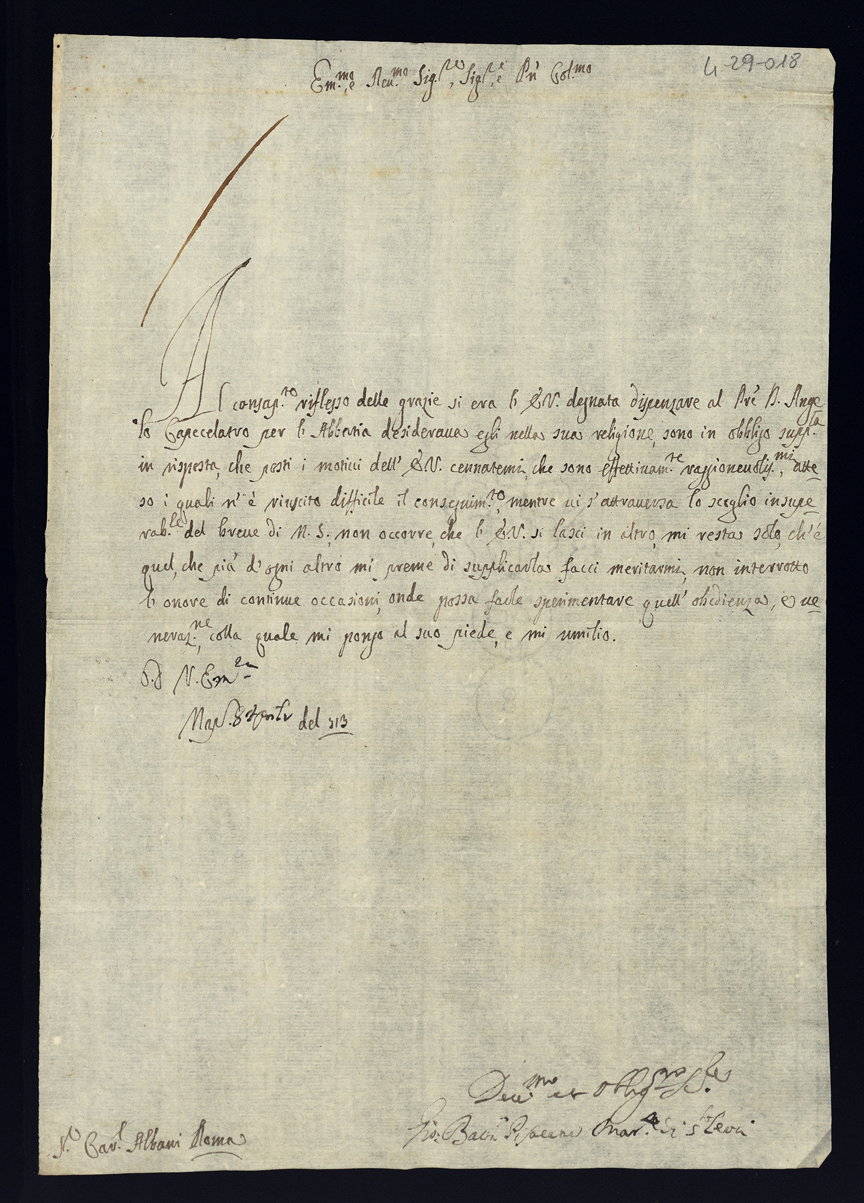 4-29-018
Em.mo e Reu.mo Sig.re, Sig.re e Pñ Col.mo
Al consap.to riflesso delle grazie si era l' E.V. degnata dispenzare al Prē D. Ange
lo Capecelatro per l' Abbatia desiderava egli nella sua religione, sono in obbligo suppl.la
in risposta, che posti i motivi dell' E.V. cennatemi, che sono effettivam.te raggionevoliss.mi, atte
so i quali n' è riuscito difficile il conseguim.to, mentre vi s' attraversa lo scoglio insupe
rab.le del breve di N. S., non occorre, che l' E.V. si lasci in altro, mi resta solo, ch' è
quel, che più d' ogni altro mi preme di supplicarla facci meritarmi, non interrotto
l' onore di continue occasioni, onde possa farle sperimentare quell' obedienza, e ve
neraz.ne, colla quale mi pongo al suo piede, e mi umilio.
D. V. Em.za
Nap. 8 del 713
Dev.mo et Obblig.mo
Gio: Batt.a Mar.e di
S.r Car.l Albani Roma